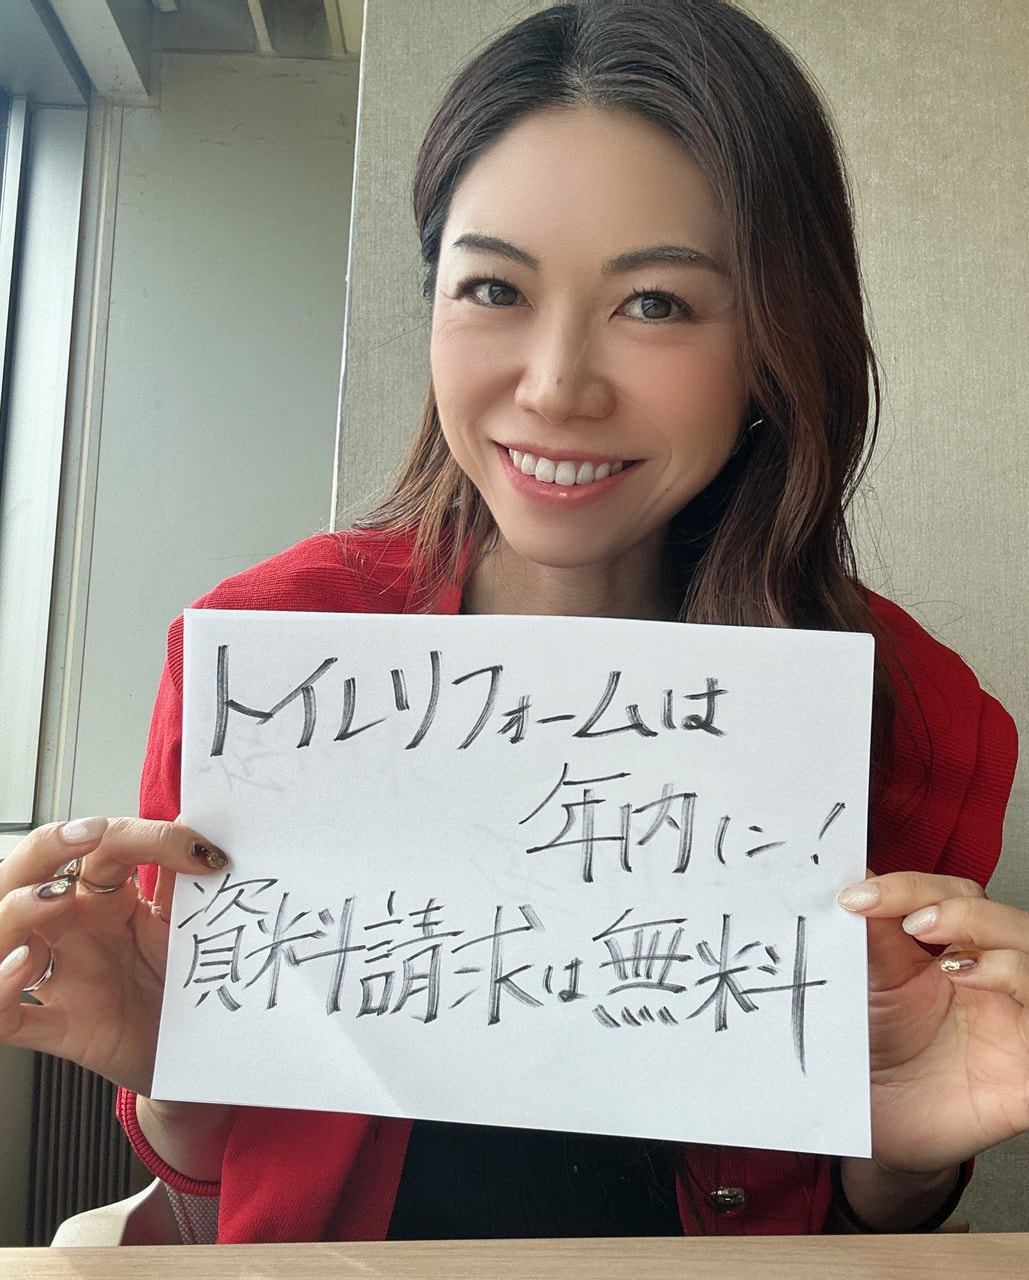 トイレリフォームは
年内に！
資料請求は無料